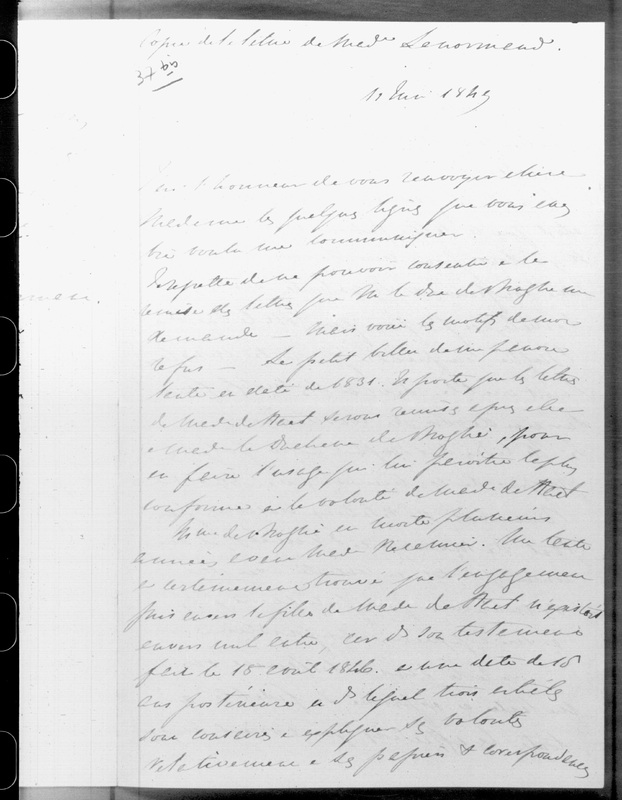 Copie de la lettre de Made Lenormand.
37 bis
11 Juin 1849
J'ai l'honneur de vous renvoyer chère
Madame les quelques lignes que vous avez
bien voulu me communiquer.
Je regrette de ne pouvoir consentir à la
remise des lettres que M le Duc de Broglie me
demande — Mais voici les motifs de mon
refus — Le petit billet de ma pauvre
tante en date de 1831. Il porte que les lettres
de Made de Stael seront remises après elle
à Made la Duchesse de Broglie, pour
en faire l'usage qui lui paroitra le plus
conforme à la volonté de Made de Stael
Mme de Broglie est morte plusieurs
années avant Made Récamier. Ma tante
a certainement trouvé que l'engagement
pris envers la fille de Made de Stael n'existait
envers nul autre, car ds son testament
fait le 18 août 1846. à une date de 15
ans postérieure et ds lequel trois articles
sont consacrés à expliquer ses volontés
relativement à ses papiers & correspondances